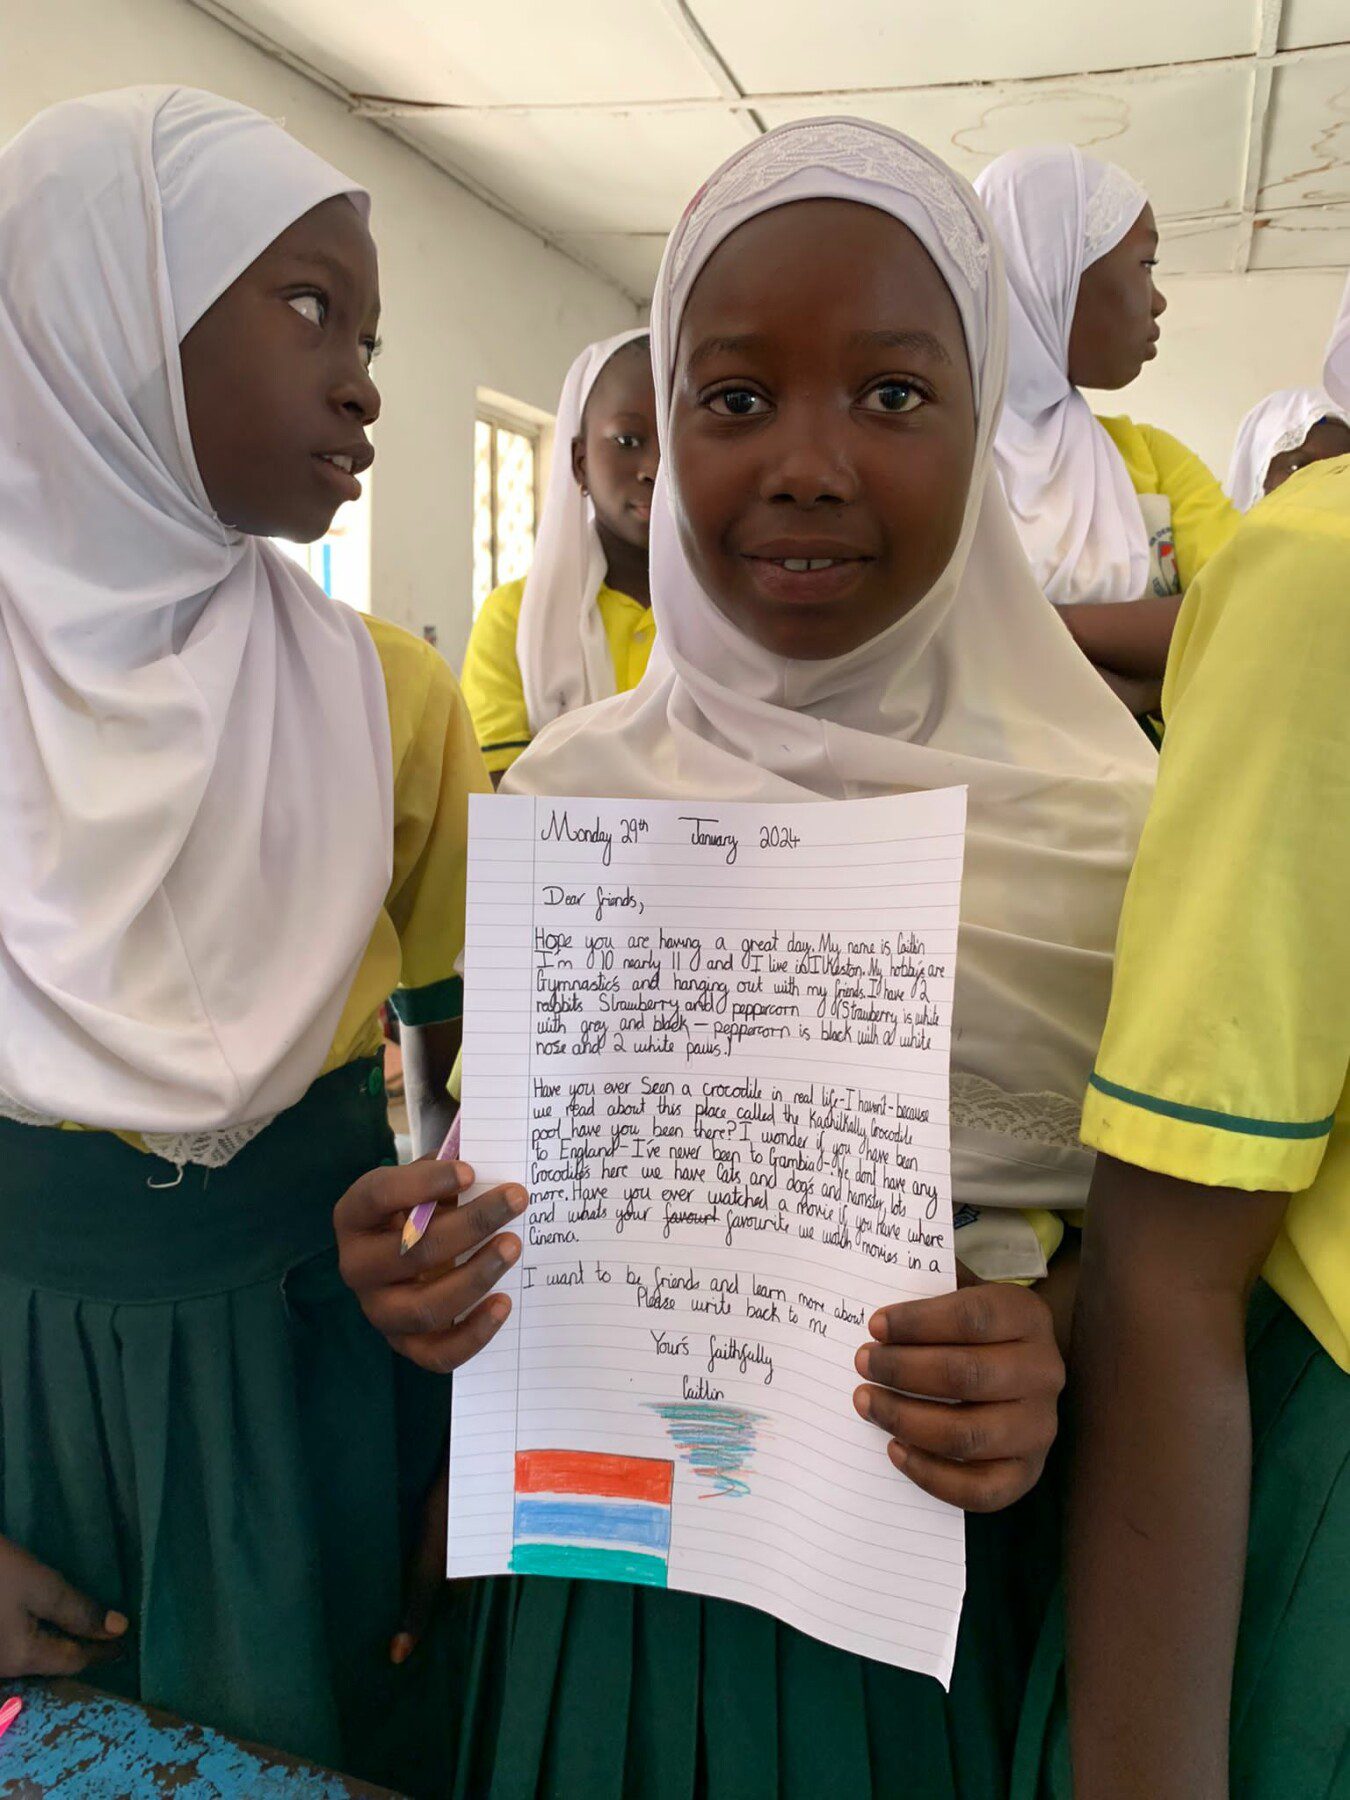 Monday 29th January 2024
Dear friends,
Hope you are having a great day. My name is Caitlin
I'm 10 nearly 11 and I live in Ilkeston. My hobby's are
Gymnastic's and hanging out with my friends. I have 2
rabbits Strawberry and peppercorn (Strawberry is white
with grey and black - peppercorn is black with a white
nose and 2 white paws.)
Have you ever Seen a crocodile in real life - I havent - because
we read about this place called the Kachilkally Crocodile
pool have you been there? I wonder if you have been
to England - I've never been to Gambia - We dont have any
Crocodile's here we have Cats and dog's and hamster, lots
more. Have you ever watched a movie if you have where
and whats your favourt favourite we watch movies in a
Cinema.
I want to be friends and learn more about
Please write back to me
Your's faithfully
Caitlin